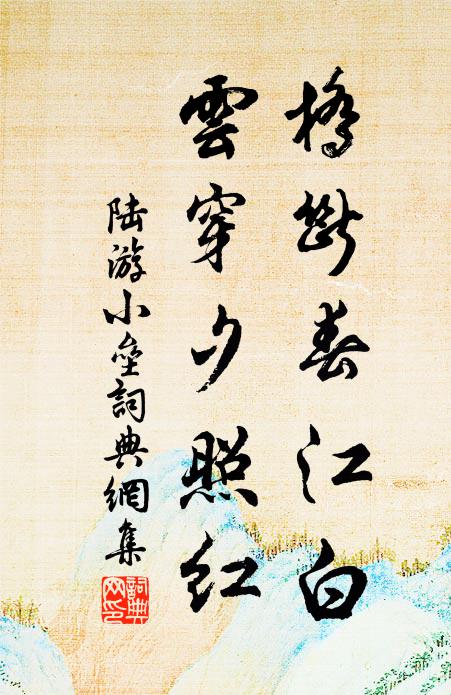 橋斷春江白
雲穿夕照紅
陆游小垒詞典網集
詞典网印